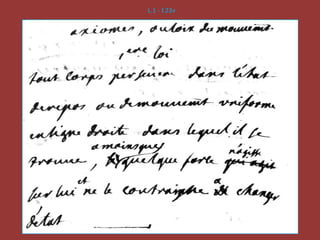 L.1 - t.23v
axiomes, ou loix du mouvemt.
1ere loi
tout corps persevere dans l'état
de repos ou de mouvemt uniforme
en ligne droite dans lequel il se
amoinsque
trouve, quelque force n'agisse
qui agit
sur lui et ne le contraigne a de changer
d'état